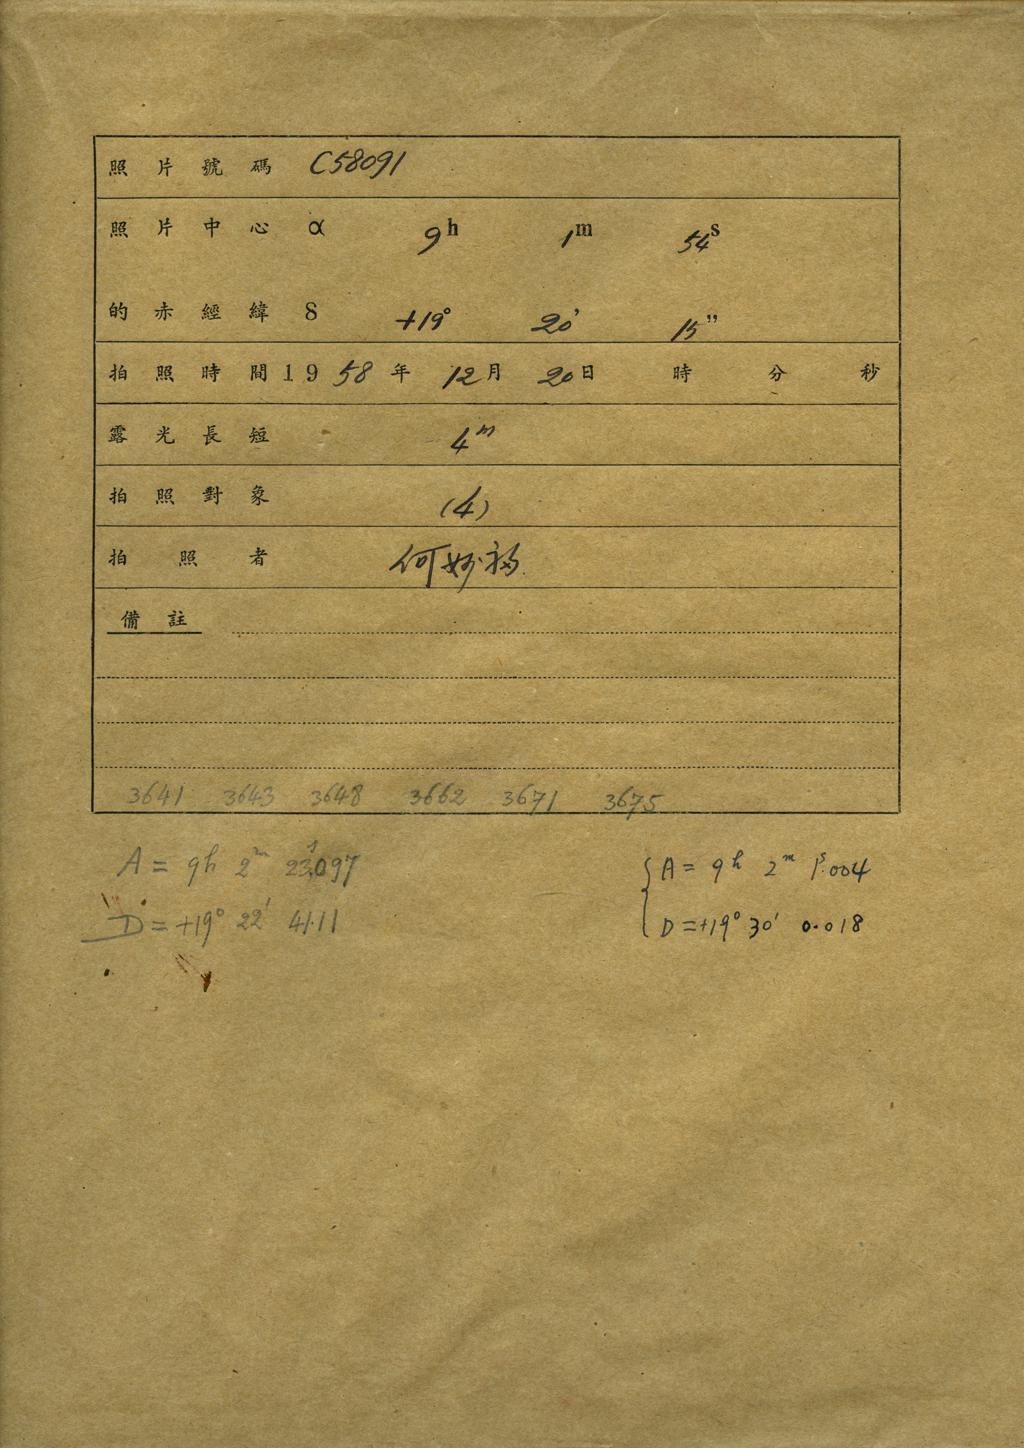 照片號碼 C58091
照片中心 α 9h 1m 54s
的赤經緯 δ +19° 20' 15"
拍照時間 1958年 12月 20日 時 分 秒
露光長短 4m
拍照對象 (4)
拍照者 何妙福
備註
3641 3643 3648 3662 3671 3675
A = 9h 2m 23s.097
D = +19° 22' 41.11
A = 9h 2m 1s.004
D = +19° 30' 0.018